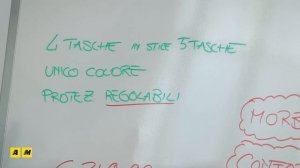 4 TASCHE IN STILE 5 TASCHE
UNICO COLORE
PROTEZ REGOLABILI
MORE
CONTO
AM